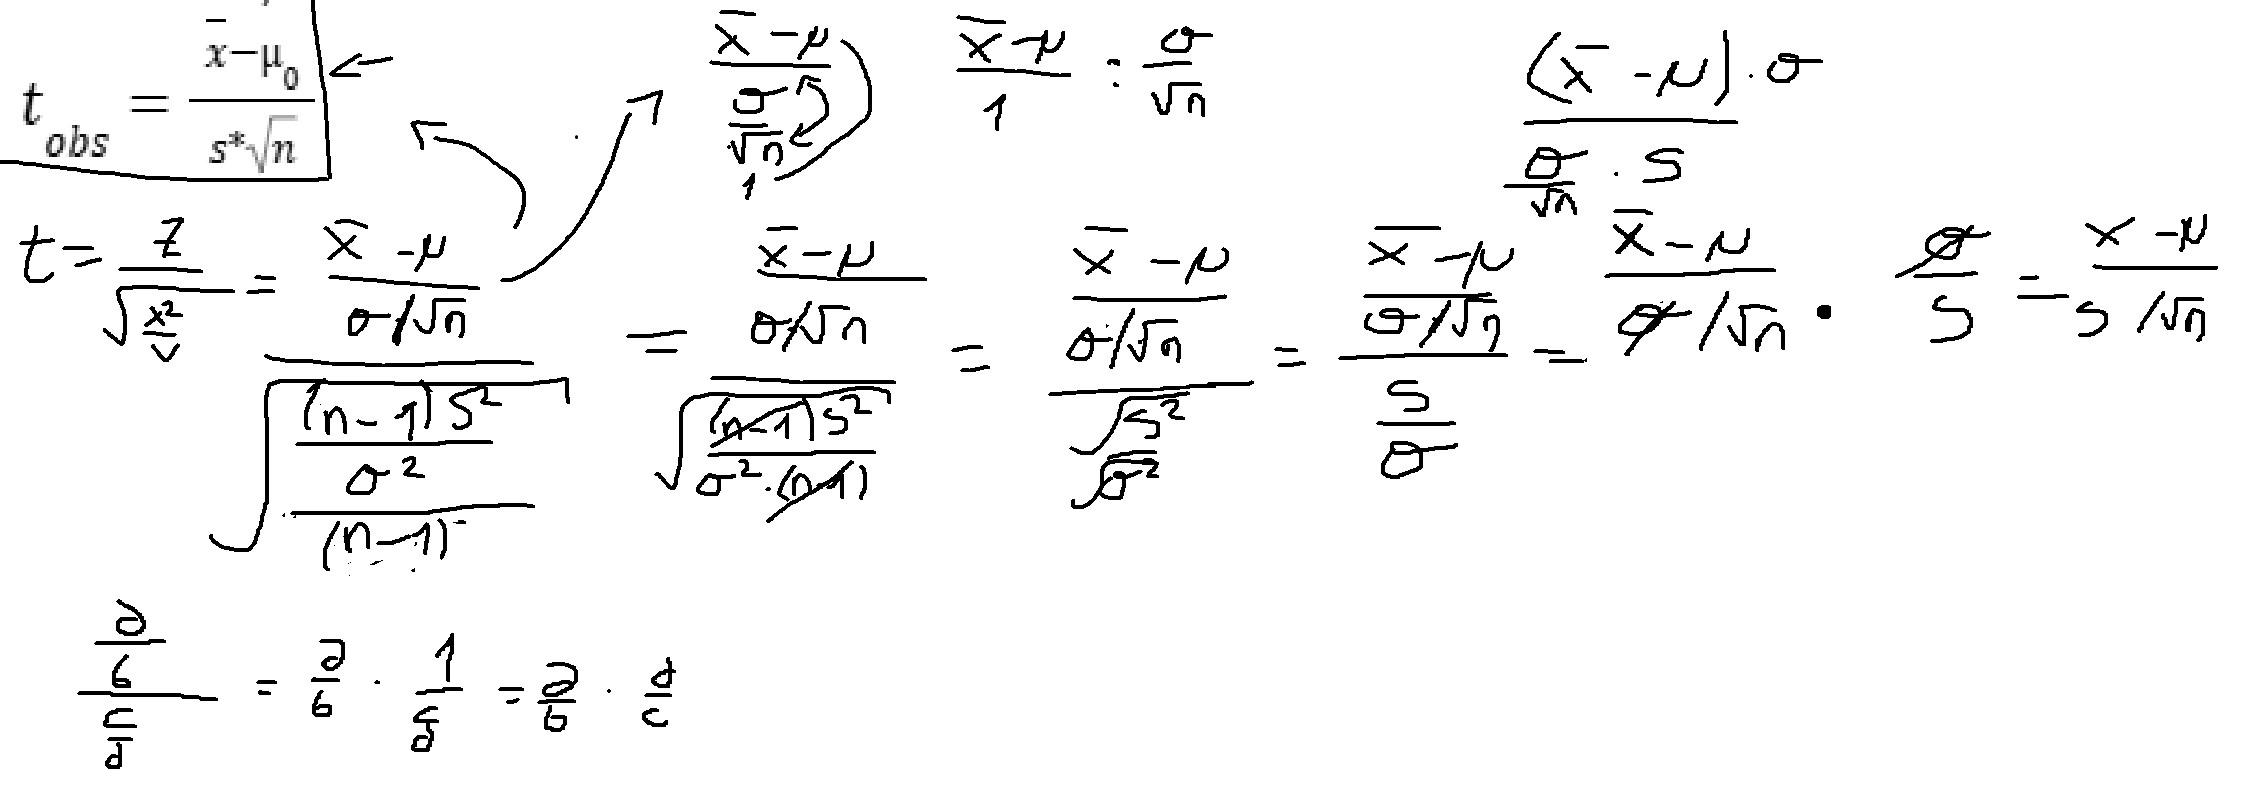 t_obs = (x̄ − μ₀) / (s*√n)
(x̄ − μ) / ((σ/√n) / 1)
(x̄ − μ)/1 : σ/√n
((x̄ − μ) · σ) / ((σ/√n) · S)
t = Z / √(x²/v) = ((x̄ − μ) / (σ/√n)) / √(((n−1)S²/σ²) / (n−1)) = ((x̄ − μ) / (σ/√n)) / √((n−1)S² / (σ² · (n−1))) = ((x̄ − μ) / (σ/√n)) / (√S² / √σ²) = ((x̄ − μ) / (σ/√n)) / (S/σ) = (x̄ − μ) / (σ/√n) · σ/S = (x − μ) / (S/√n)
(a/b) / (c/d) = a/b · 1/(c/d) = a/b · d/c